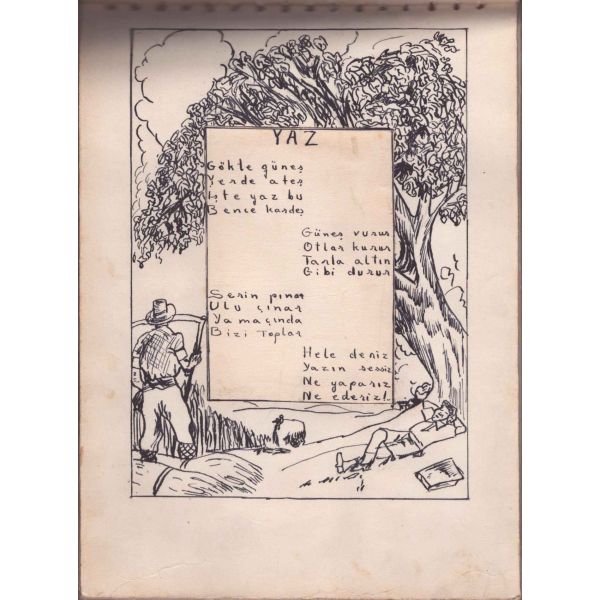 YAZ
Gökte güneş
Yerde ateş
İşte yaz bu
Bence kardeş
Güneş vurur
Otlar kurur
Tarla altın
Gibi durur
Serin pınar
Ulu çınar
Yamaçında
Bizi toplar
Hele deniz
Yazın sessiz
Ne yaparız
Ne ederiz!..